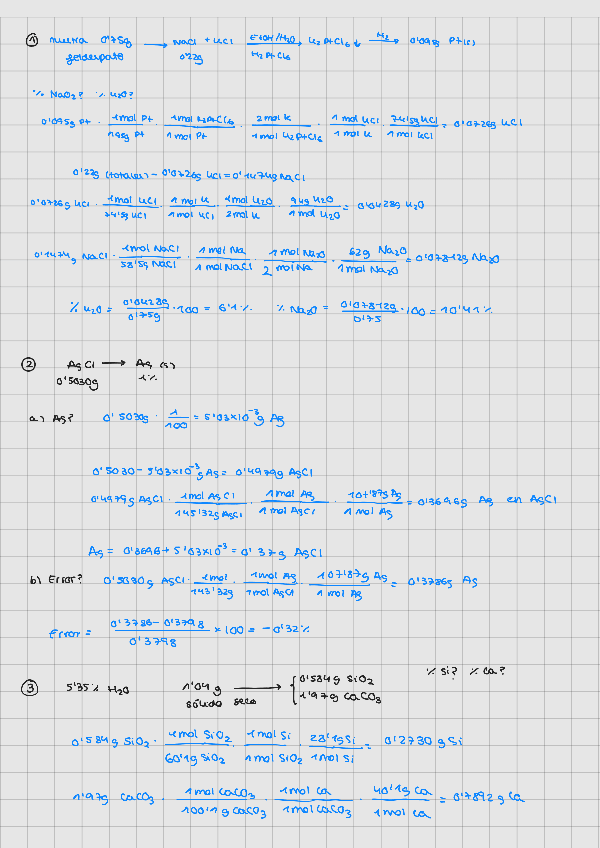 ① muestra 0'75g → NaCl + KCl EtOH/H2O → K2PtCl6 ↓ H2 → 0'095g Pt(s)
feldespato 0'22g H2PtCl6
% Na2O? % K2O?
0'095g Pt · 1mol Pt / 195g Pt · 1mol K2PtCl6 / 1mol Pt · 2mol K / 1mol K2PtCl6 · 1mol KCl / 1mol K · 74'5g KCl / 1mol KCl = 0'0726g KCl
0'22g (totales) - 0'0726g KCl = 0'1474g NaCl
0'0726g KCl · 1mol KCl / 74'5g KCl · 1mol K / 1mol KCl · 1mol K2O / 2mol K · 94g K2O / 1mol K2O = 0'0428g K2O
0'1474g NaCl · 1mol NaCl / 58'5g NaCl · 1mol Na / 1mol NaCl · 1mol Na2O / 2molNa · 62g Na2O / 1mol Na2O = 0'07812g Na2O
% K2O = 0'0428g / 0'75g · 100 = 6'1% % Na2O = 0'07812g / 0'75 · 100 = 10'41%
② AgCl → Ag (s)
0'5030g 1%
a) Ag? 0'5030g · 1 / 100 = 5'03×10⁻³ g Ag
0'5030 - 5'03×10⁻³ g Ag = 0'4979g AgCl
0'4979g AgCl · 1mol AgCl / 143'32g AgCl · 1mol Ag / 1mol AgCl · 107'87g Ag / 1mol Ag = 0'3696g Ag en AgCl
Ag = 0'3696 + 5'03×10⁻³ = 0'37g AgCl
b) Error? 0'5030g AgCl · 1mol / 143'32g · 1mol Ag / 1mol AgCl · 107'87g Ag / 1mol Ag = 0'3786g Ag
Error = 0'3786 - 0'3798 / 0'3798 × 100 = -0'32%
% Si? % Ca?
③ 5'35% H2O 1'04g → { 0'584g SiO2
sólido seco 1'97g CaCO3
0'584g SiO2 · 1mol SiO2 / 60'1g SiO2 · 1mol Si / 1mol SiO2 · 28'1gSi / 1mol Si = 0'2730g Si
1'97g CaCO3 · 1mol CaCO3 / 100'1g CaCO3 · 1mol Ca / 1mol CaCO3 · 40'1g Ca / 1mol Ca = 0'7892g Ca